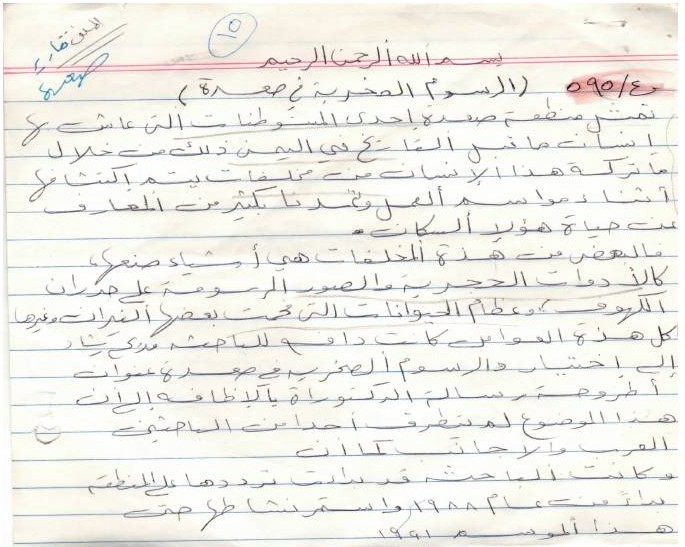 الملف قارئ
صعدة
١٥
بسم الله الرحمن الرحيم
٥٩٥/٤٠ (الرسوم الصخرية في صعدة)
تمثل منطقة صعدة إحدى المستوطنات التي عاش بها
إنسان ما قبل التاريخ في اليمن وذلك من خلال
ما تركة هذا الإنسان من مخلفات يتم إكتشافها
أثناء مواسم العمل وتمدنا بكثير من المعارف
عن حياة هؤلاء السكان.
فالبعض من هذة المخلفات هي أشياء صنعها،
كالأدوات الحجرية والصور المرسومة على جدران
الكهوف، وعظام الحيوانات التي محت بعضها الغدرات وغيرها
كل هذة العوامل كانت دافع للباحثه مديحي رشاد
إلى إختيار والرسوم الصخريه في صعدة عنوان
أطروحة رسالة الدكتوراة بالإظافه إلى أن
هذا الموضوع لم يتطرق أحدا من الباحثين
العرب والاجانب كما أن
وكانت الباحثه قد بدات ترددها على المنطقه
بداءً من عام ١٩٨٨ واستمر نشاطها حتى
هذا الموسم ١٩٩١